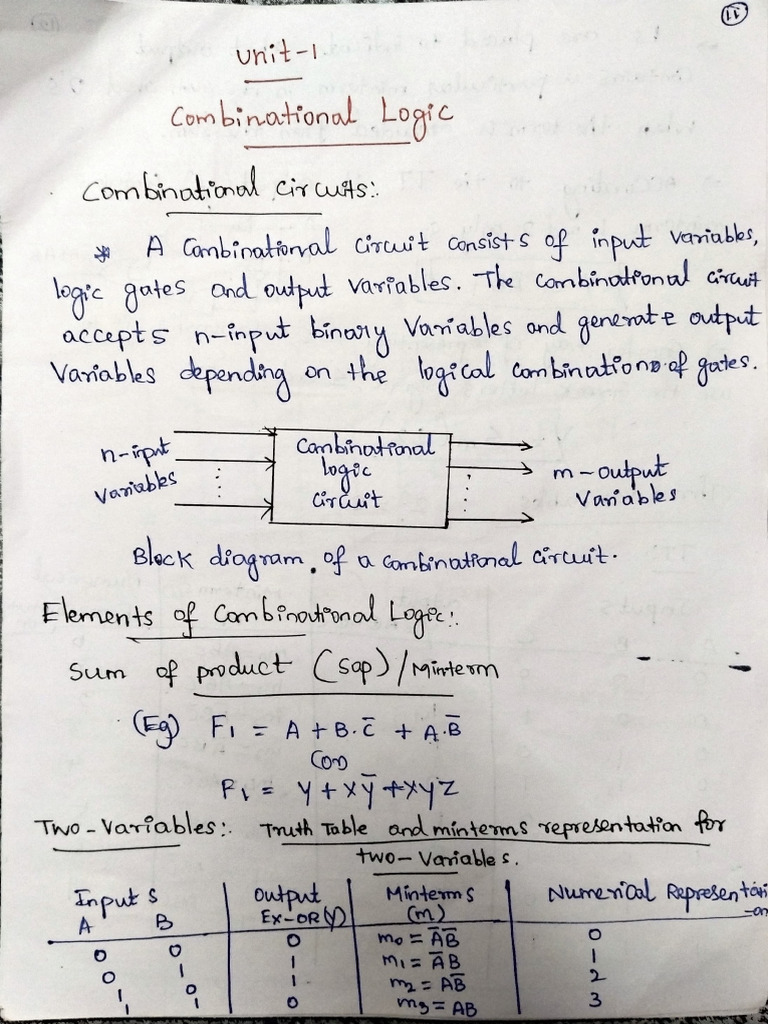 11
Unit-1
Combinational Logic
Combinational Circuits:
* A Combinational Circuit consists of input variables,
logic gates and output variables. The combinational circuit
accepts n-input binary variables and generate output
Variables depending on the logical combinations of gates.
n-input
variables
Combinational
logic
circuit
m-output
variables
Block diagram of a combinational circuit.
Elements of Combinational Logic:
Sum of product (SOP)/Minterm
(Eg) F1 = A + B.C̅ + A.B̅
(or)
F1 = y + xy̅ + xyz
Two-Variables: Truth Table and minterms representation for
two-Variables.
Inputs | Output | Minterms | Numerical Representation
A B | EX-OR(Y) | (m)
0 0 | 0 | m0 = A̅B̅ | 0
0 1 | 1 | m1 = A̅B | 1
1 0 | 1 | m2 = AB̅ | 2
1 1 | 0 | m3 = AB | 3